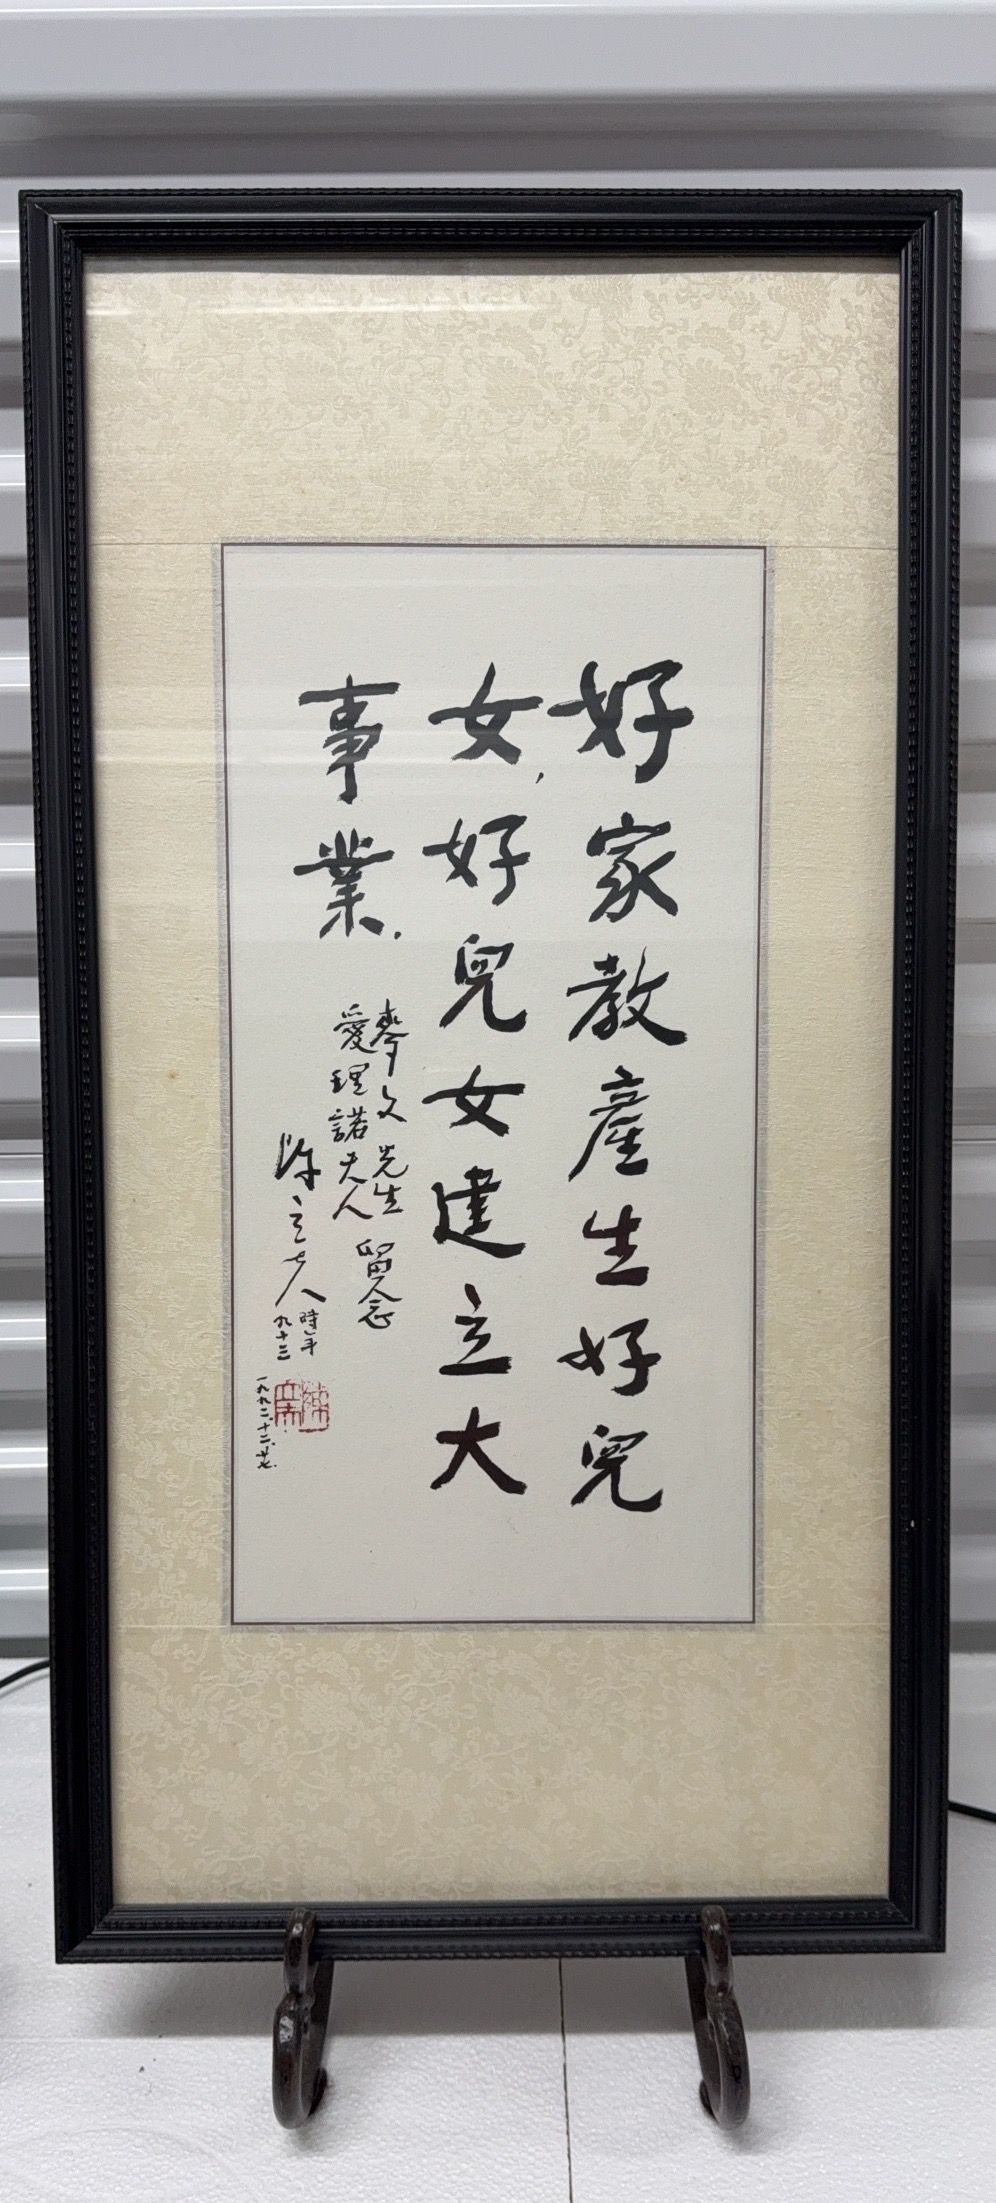 好家教產生好兒
女,好兒女建立大
事業.
孝文先生 留念
愛理諾夫人
陳立夫 時年
九十三
一九九二.十二.廿七.
陳立夫